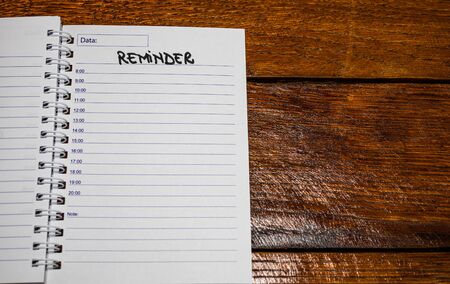 Data:
REMINDER
8:00
9:00
10:00
11:00
12:00
13:00
14:00
15:00
16:00
17:00
18:00
19:00
20:00
Note: